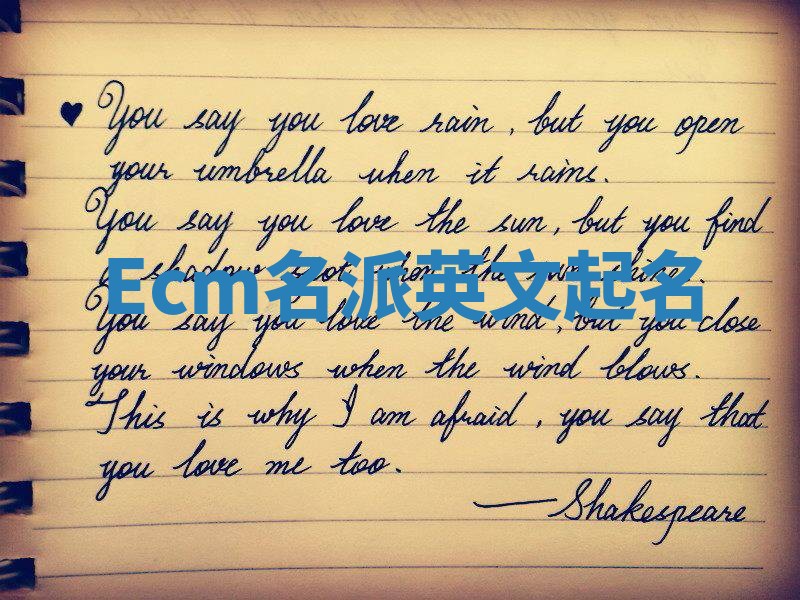 ♥ You say you love rain, but you open
your umbrella when it rains.
You say you love the sun, but you find
a shadow spot when the sun shines.
Ecm名派英文起名
You say you love the wind, but you close
your windows when the wind blows.
This is why I am afraid, you say that
you love me too.
—Shakespeare